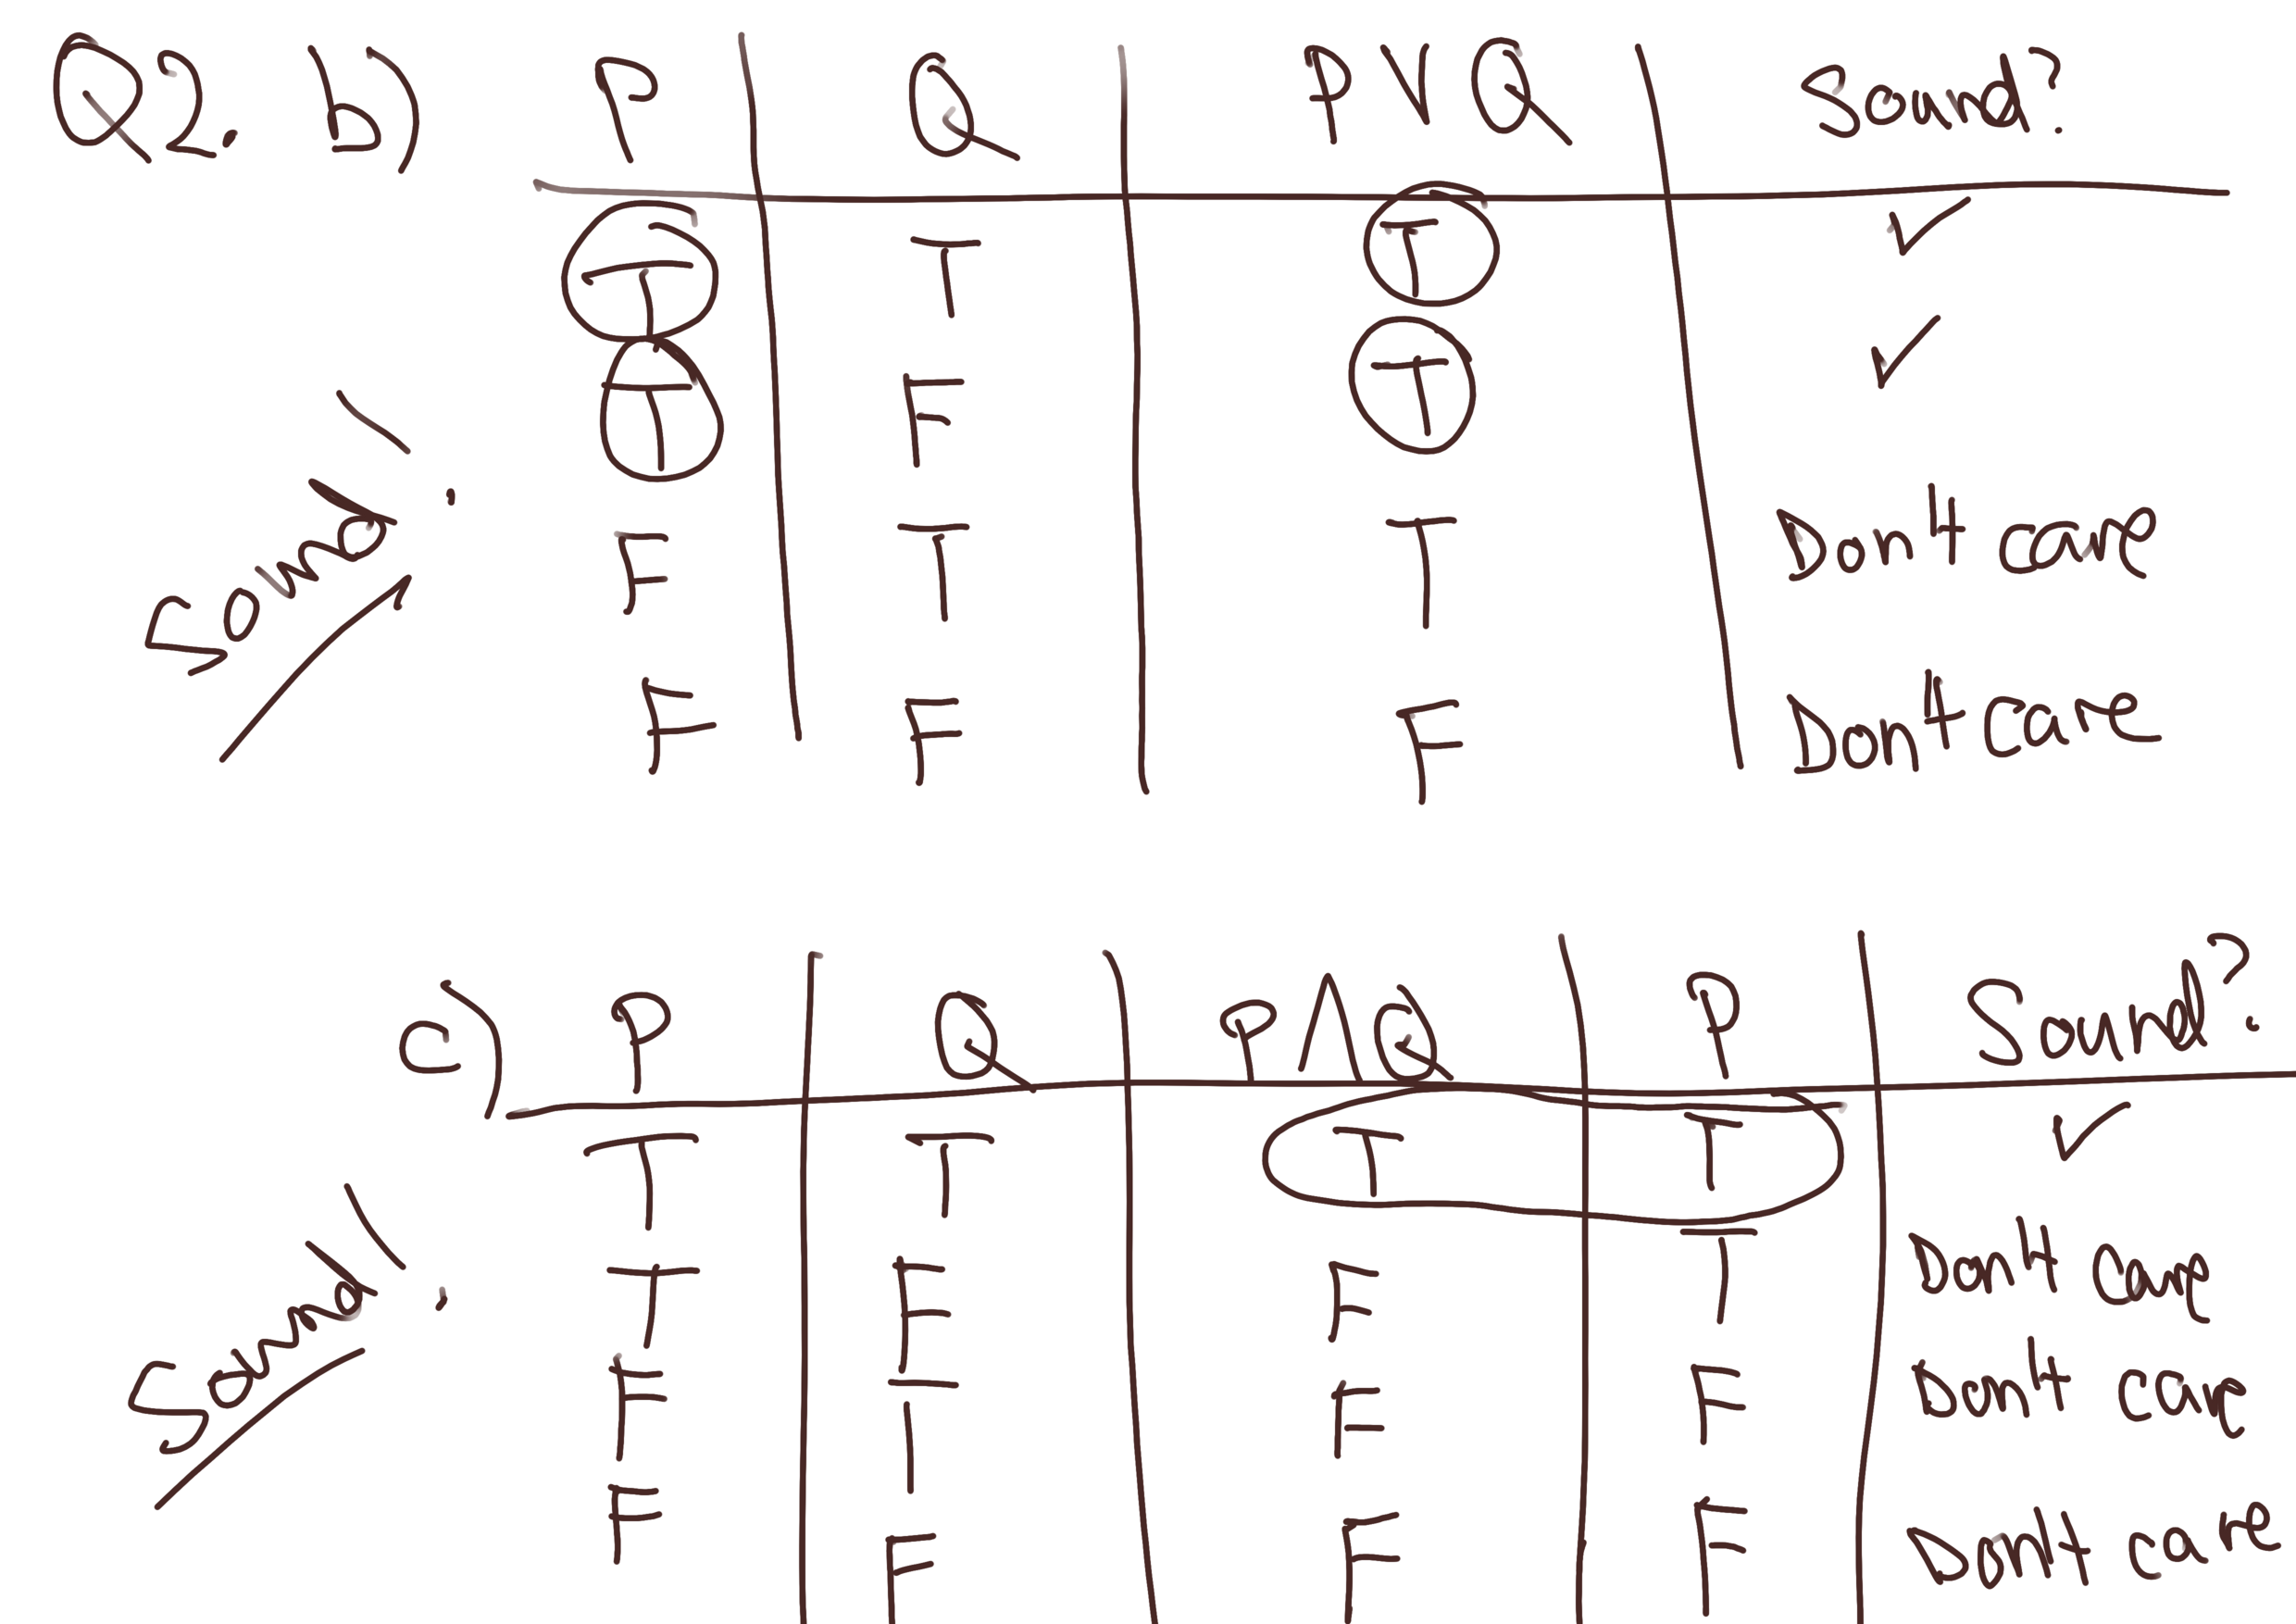 Q2. b) P Q P V Q Sound?
T T T ✓
T F T ✓
F T T Don't care
F F F Don't care
Sound!
c) P Q P Λ Q P Sound?
T T T T ✓
T F F T Don't care
F T F F Don't care
F F F F Don't care
Sound!